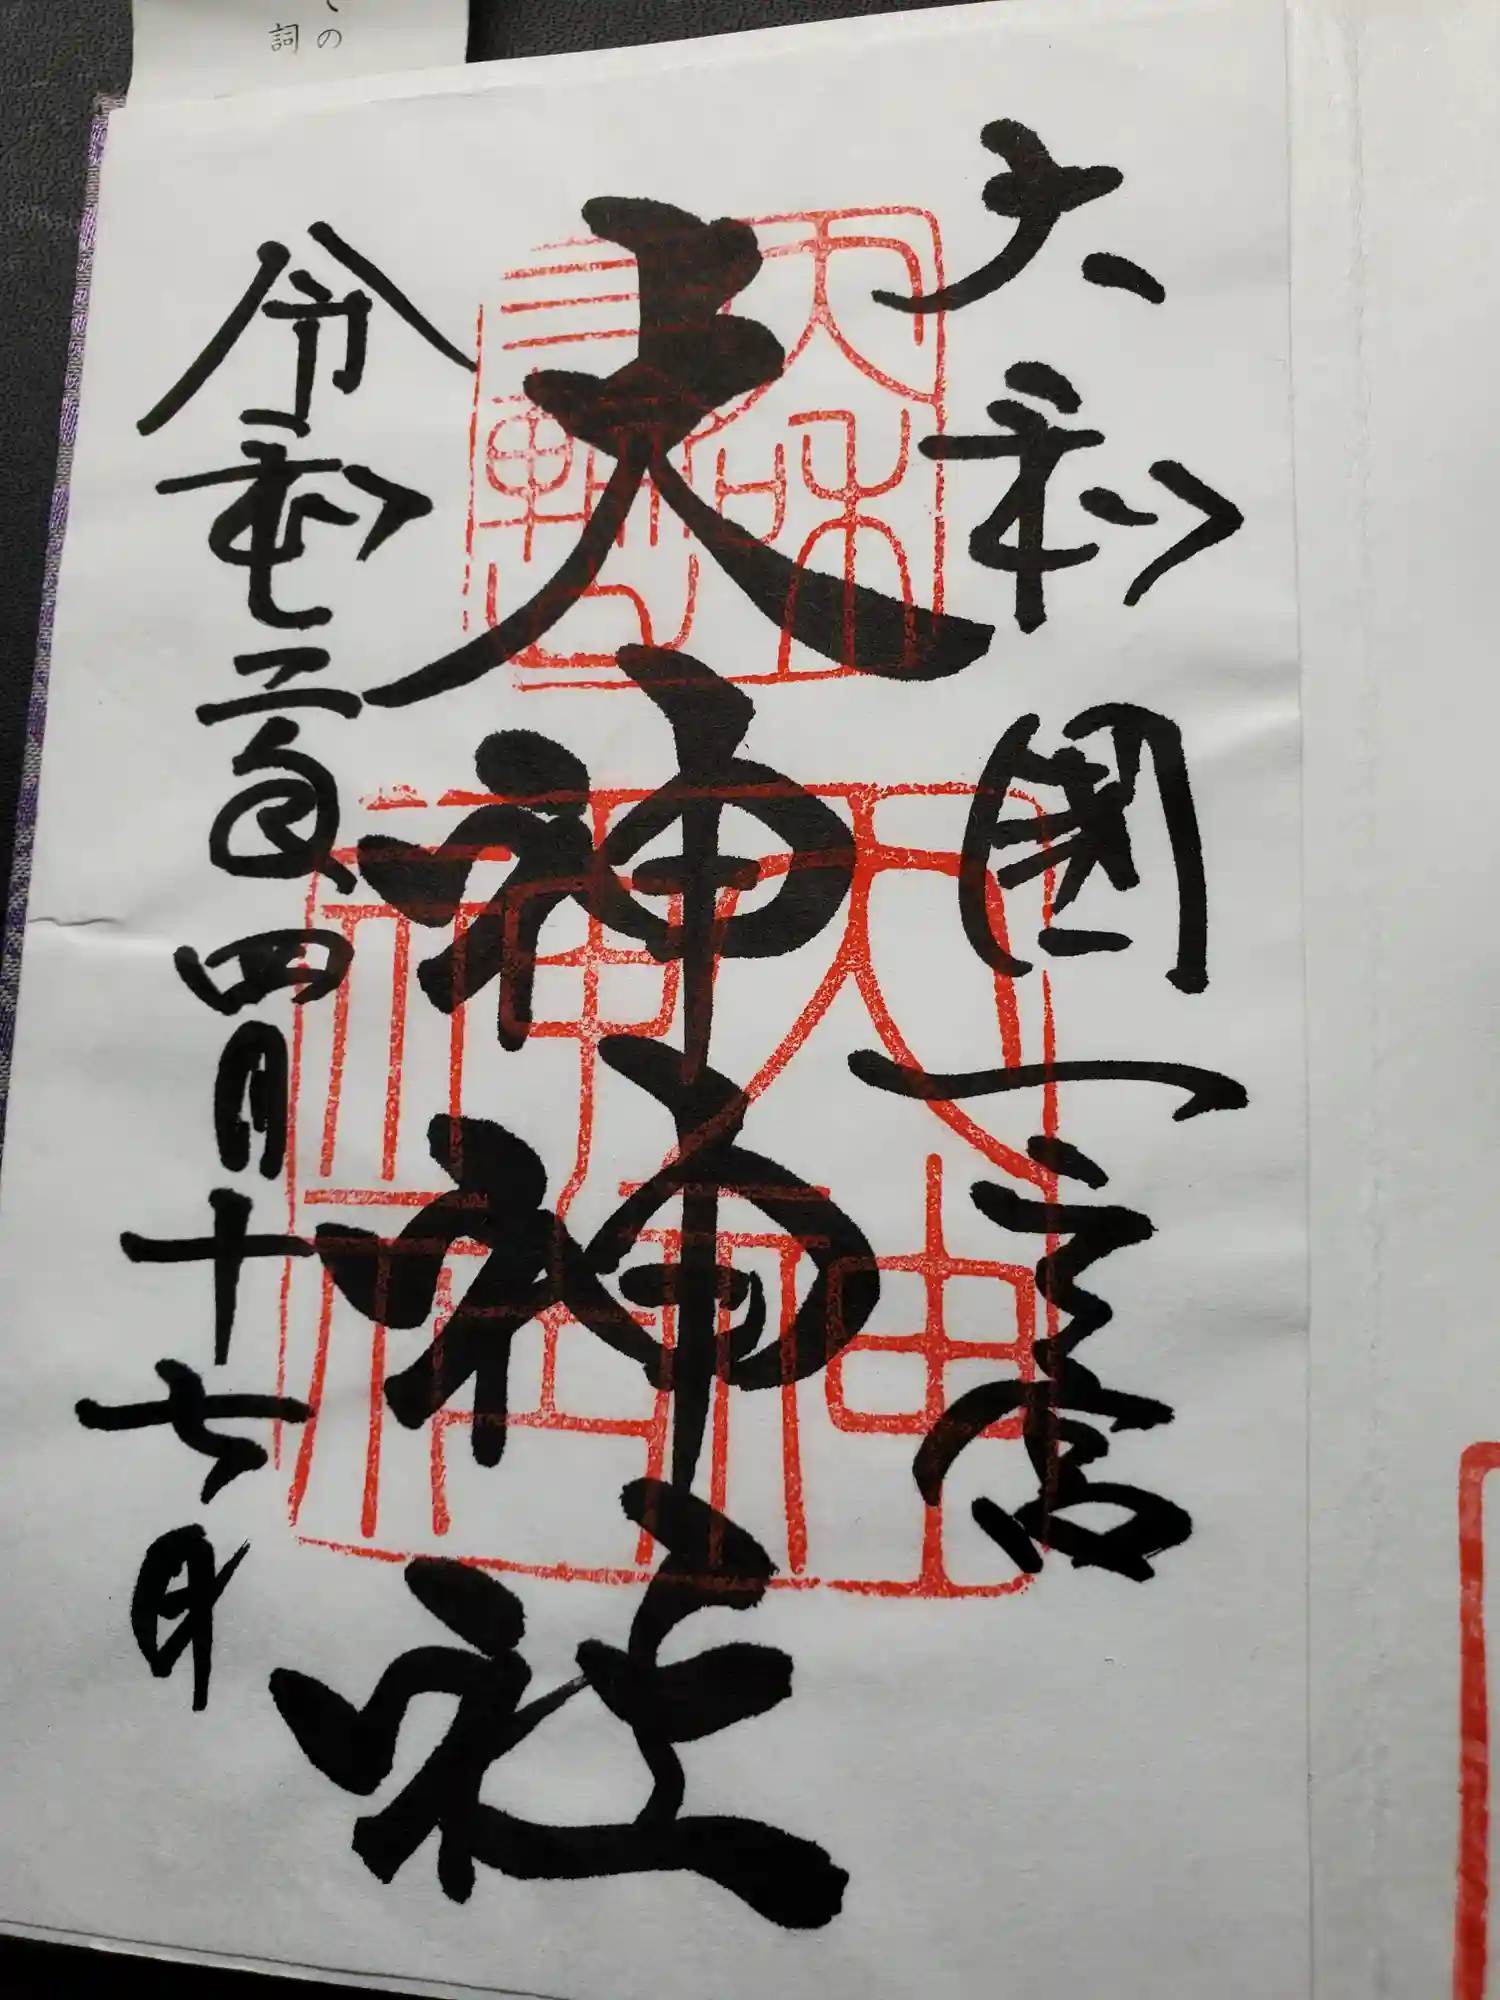 の
詞
大和國一之宮
大神神社
令和二年四月十七日
大和
三輪山
大神
神社